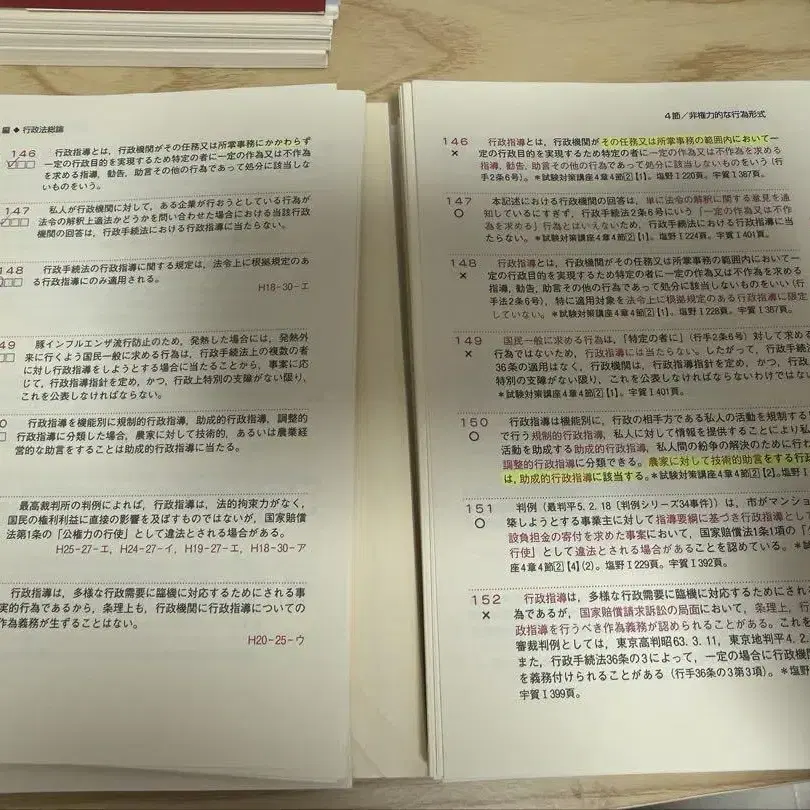 編◆行政法総論
146
行政指導とは，行政機関がその任務又は所掌事務にかかわらず
一定の行政目的を実現するため特定の者に一定の作為又は不作為
を求める指導，勧告，助言その他の行為であって処分に該当しな
いものをいう。
147
私人が行政機関に対して，ある企業が行おうとしている行為が
法令の解釈上適法かどうかを問い合わせた場合における当該行政
機関の回答は，行政手続法における行政指導に当たらない。
148
行政手続法の行政指導に関する規定は，法令上に根拠規定のあ
る行政指導にのみ適用される。
H18-30-エ
49
豚インフルエンザ流行防止のため，発熱した場合には，発熱外
来に行くよう国民一般に求める行為は，行政手続法上の複数の者
に対し行政指導をしようとする場合に当たることから，事案に応
じて，行政指導指針を定め，かつ，行政上特別の支障がない限り，
これを公表しなければならない。
0
行政指導を機能別に規制的行政指導，助成的行政指導，調整的
行政指導に分類した場合，農家に対して技術的，あるいは農業経
営的な助言をすることは助成的行政指導に当たる。
最高裁判所の判例によれば，行政指導は，法的拘束力がなく，
国民の権利利益に直接の影響を及ぼすものではないが，国家賠償
法第1条の「公権力の行使」として違法とされる場合がある。
H25-27-エ，H24-27-イ，H19-27-エ，H18-30-ア
行政指導は，多様な行政需要に臨機に対応するためにされる事
実的行為であるから，条理上も，行政機関に行政指導についての
作為義務が生ずることはない。
H20-25-ウ
4節／非権力的な行為形式
146
×
行政指導とは，行政機関がその任務又は所掌事務の範囲内において一
定の行政目的を実現するため特定の者に一定の作為又は不作為を求める
指導，勧告，助言その他の行為であって処分に該当しないものをいう（行
手2条6号）。＊試験対策講座4章4節②【1】。塩野Ⅰ220頁。宇賀Ⅰ387頁。
147
○
本記述における行政機関の回答は，単に法令の解釈に関する意見を通
知しているにすぎず，行政手続法2条6号にいう「一定の作為又は不作
為を求める」行為とはいえないため，行政手続法における行政指導に当
たらない。＊試験対策講座4章4節②【1】。塩野Ⅰ224頁。宇賀Ⅰ401頁。
148
×
行政指導とは，行政機関がその任務又は所掌事務の範囲内において一
定の行政目的を実現するため特定の者に一定の作為又は不作為を求める
指導，勧告，助言その他の行為であって処分に該当しないものをいい（行
手法2条6号），特に適用対象を法令上に根拠規定のある行政指導に限定
していない。＊試験対策講座4章4節②【1】。塩野Ⅰ228頁。宇賀Ⅰ387頁。
149
×
国民一般に求める行為は，「特定の者に」（行手2条6号）対して求める
行為ではないため，行政指導には当たらない。したがって，行政手続法
36条の適用はなく，行政機関は，行政指導指針を定め，かつ，行政
特別の支障がない限り，これを公表しなければならないわけではな
＊試験対策講座4章4節②【1】。宇賀Ⅰ401頁。
150
○
行政指導は機能別に，行政の相手方である私人の活動を規制する
で行う規制的行政指導，私人に対して情報を提供することにより私
活動を助成する助成的行政指導，私人間の紛争の解決のために行わ
調整的行政指導に分類できる。農家に対して技術的助言をする行政
は，助成的行政指導に該当する。＊試験対策講座4章4節②【2】。塩野Ⅰ
151
○
判例（最判平5.2.18〔判例シリーズ34事件〕）は，市がマンショ
築しようとする事業主に対して指導要綱に基づき行政指導として
設負担金の寄付を求めた事案において，国家賠償法1条1項の「公
行使」として違法とされる場合があることを認めている。＊試
座4章4節②【4】(2)。塩野Ⅰ229頁。宇賀Ⅰ392頁。
152
×
行政指導は，多様な行政需要に臨機に対応するためにされる
為であるが，国家賠償請求訴訟の局面において，条理上，行
政指導を行うべき作為義務が認められることがある。これを
審裁判例としては，東京高判昭63.3.11，東京地判平4.2.
また，行政手続法36条の3によって，一定の場合に行政機関
を義務付けられることがある（行手36条の3第3項）。＊塩野
宇賀Ⅰ399頁。